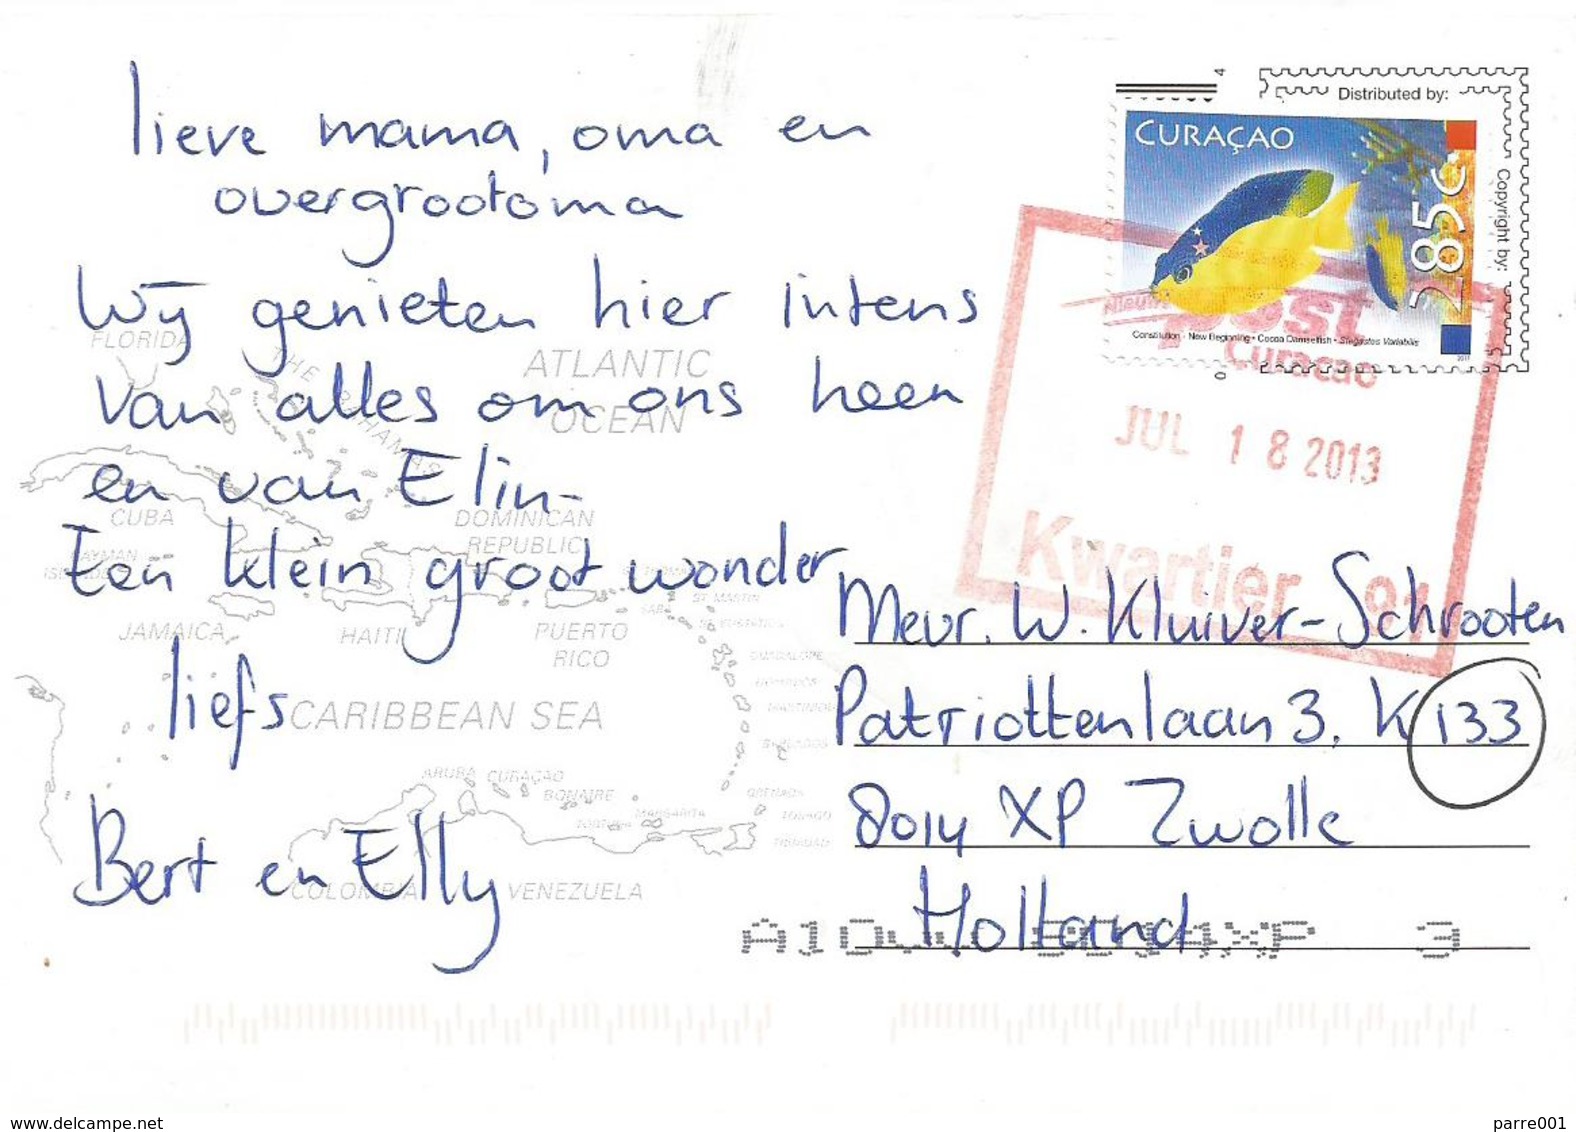 lieve mama, oma en
overgrootoma
Wij genieten hier intens
van alles om ons heen
en van Elin-
Een klein groot wonder
liefs
Bert en Elly
Distributed by:
Copyright by:
CURAÇAO
285c
Constitution - New Beginning • Cocoa Damselfish • Stegastes Variabilis
Nieuwe
post
Curaçao
JUL 18 2013
Kwartier
Mevr. W. Kluiver-Schrooten
Patriottenlaan 3, K 133
8014 XP Zwolle
Holland
FLORIDA
THE BAHAMAS
ATLANTIC
OCEAN
CUBA
CAYMAN
ISLANDS
DOMINICAN
REPUBLIC
JAMAICA
HAITI
PUERTO
RICO
ST. MARTIN
SABA
ST. EUSTATIUS
GUADALOPE
CARIBBEAN SEA
ARUBA
CURAÇAO
BONAIRE
MARGARITA
TORTUGA
GRENADA
TOBAGO
TRINIDAD
COLOMBIA
VENEZUELA
3
www.delcampe.net
parre001